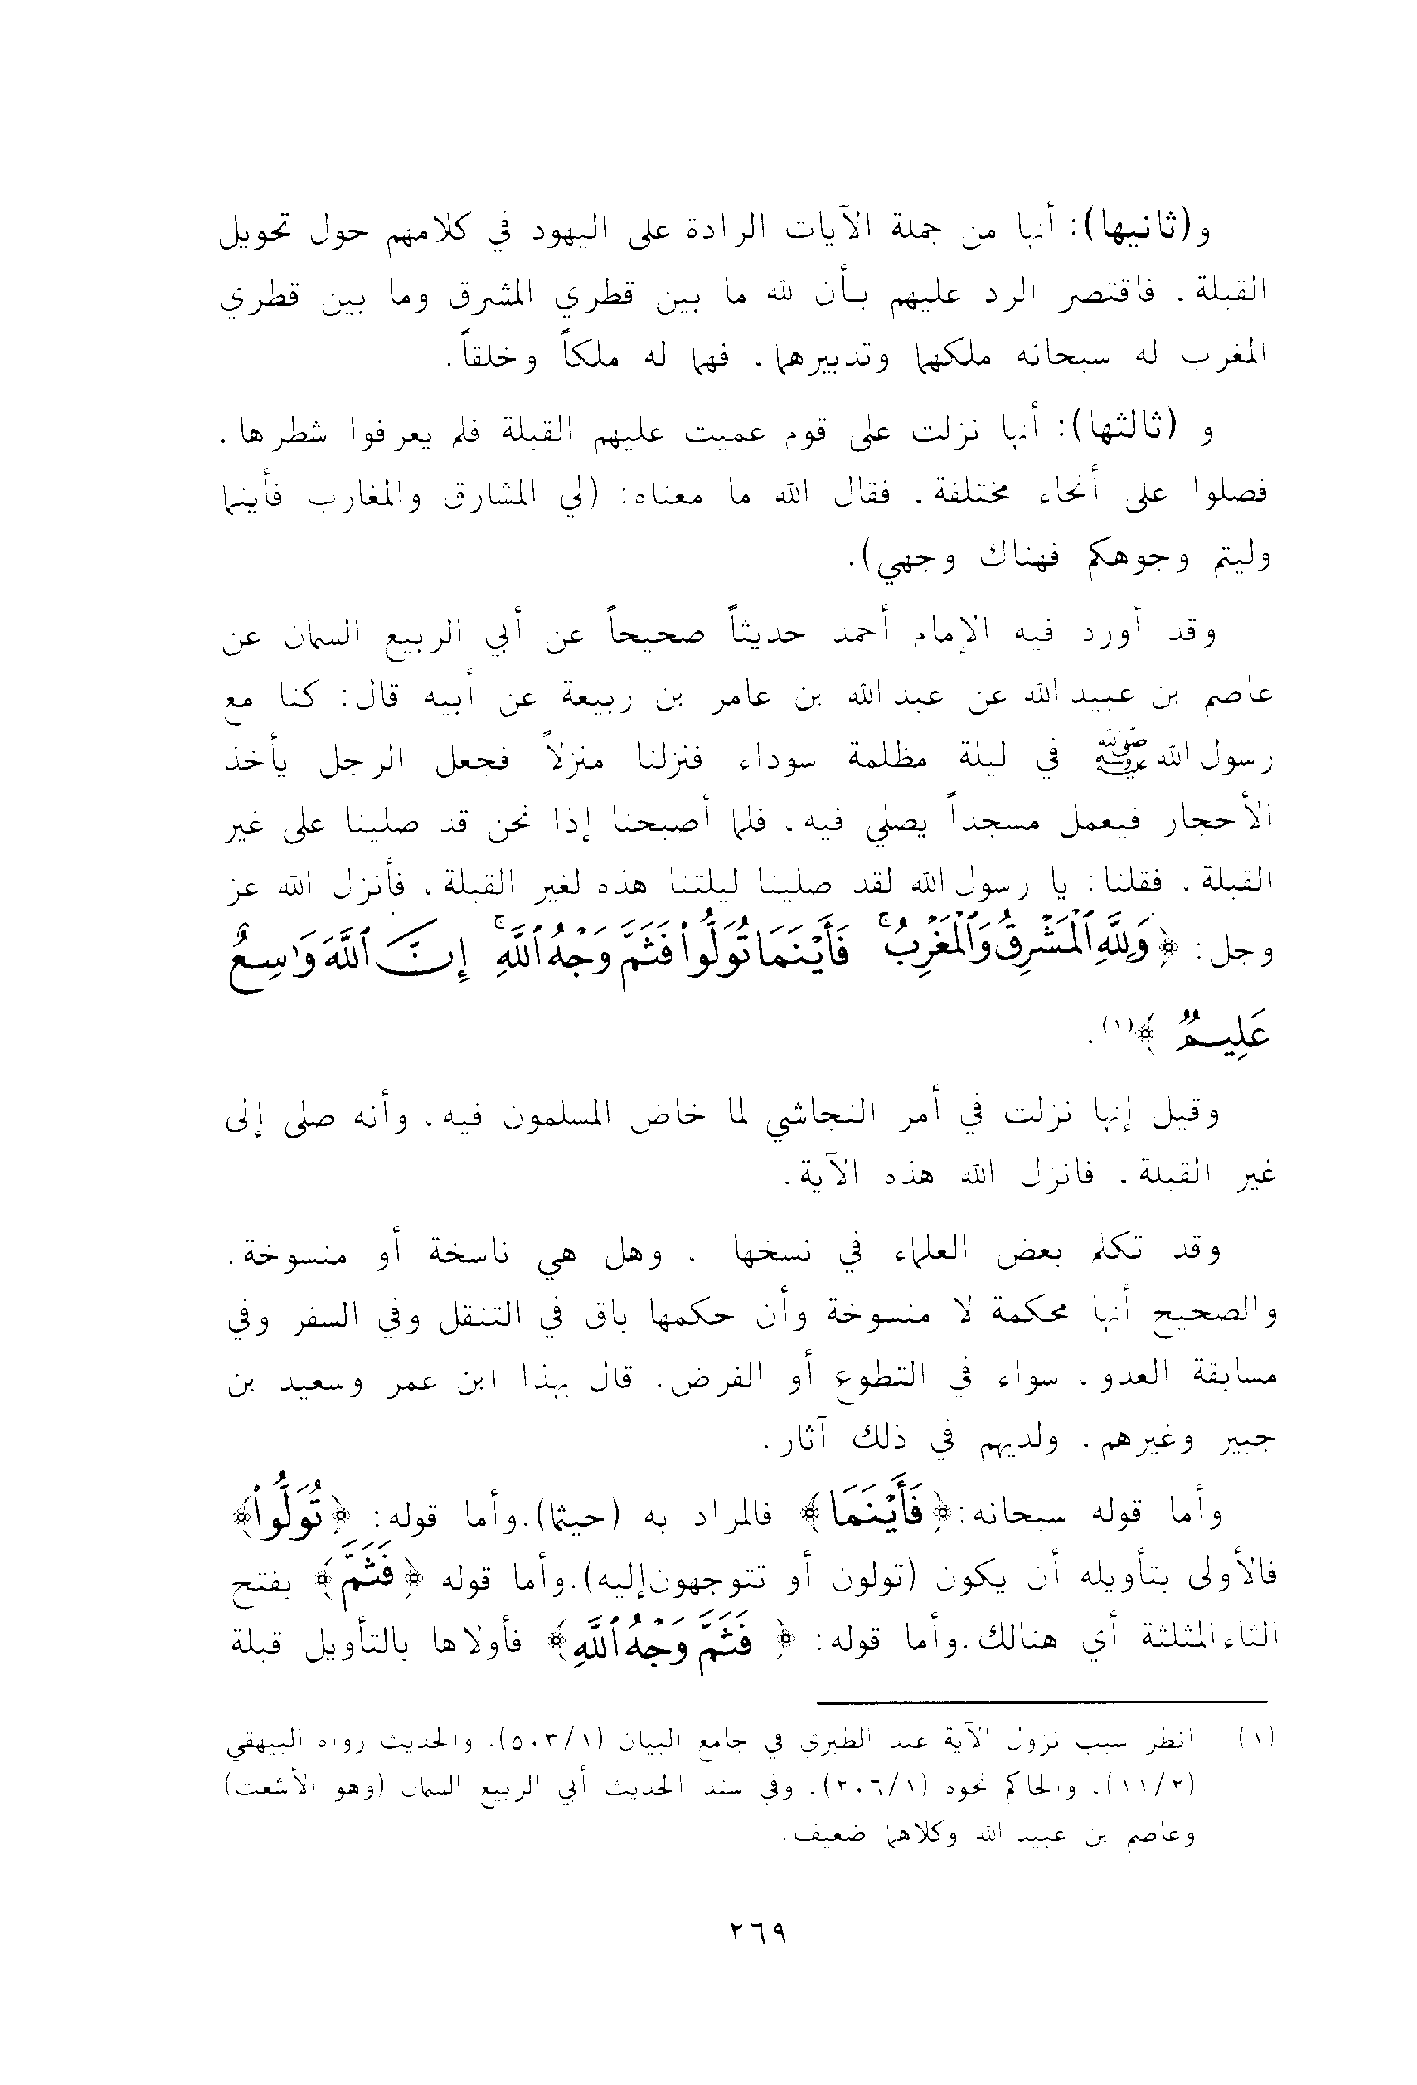 و(ثانيها): أنها من جملة الآيات الرادة على اليهود في كلامهم حول تحويل
القبلة. فاقتصر الرد عليهم بأن لله ما بين قطري المشرق وما بين قطري
المغرب له سبحانه ملكهما وتدبيرهما. فهما له ملكاً وخلقاً.
و (ثالثها): أنها نزلت على قوم عميت عليهم القبلة فلم يعرفوا شطرها.
فصلوا على أنحاء مختلفة. فقال الله ما معناه: (لي المشارق والمغارب فأينما
وليتم وجوهكم فهناك وجهي).
وقد أورد فيه الإمام أحمد حديثاً صحيحاً عن أبي الربيع السمان عن
عاصم بن عبيد الله عن عبد الله بن عامر بن ربيعة عن أبيه قال: كنا مع
رسول الله ﷺ في ليلة مظلمة سوداء فنزلنا منزلاً فجعل الرجل يأخذ
الأحجار فيعمل مسجداً يصلي فيه. فلما أصبحنا إذا نحن قد صلينا على غير
القبلة. فقلنا: يا رسول الله لقد صلينا ليلتنا هذه لغير القبلة. فأنزل الله عز
وجل: ﴿وَلِلَّهِ ٱلْمَشْرِقُ وَٱلْمَغْرِبُ ۚ فَأَيْنَمَا تُوَلُّوا۟ فَثَمَّ وَجْهُ ٱللَّهِ ۚ إِنَّ ٱللَّهَ وَٰسِعٌ
عَلِيمٌ﴾(١).
وقيل إنها نزلت في أمر النجاشي لما خاض المسلمون فيه. وأنه صلى إلى
غير القبلة. فانزل الله هذه الآية.
وقد تكلم بعض العلماء في نسخها . وهل هي ناسخة أو منسوخة.
والصحيح أنها محكمة لا منسوخة وأن حكمها باق في التنقل وفي السفر وفي
مسابقة العدو. سواء في التطوع أو الفرض. قال بهذا ابن عمر وسعيد بن
جبير وغيرهم. ولديهم في ذلك آثار.
وأما قوله سبحانه: ﴿فَأَيْنَمَا﴾ فالمراد به (حيثما).وأما قوله: ﴿تُوَلُّوا۟﴾
فالأولى بتأويله أن يكون (تولون أو تتوجهون إليه).وأما قوله ﴿فَثَمَّ﴾ بفتح
الثاء المثلثة أي هنالك.وأما قوله: ﴿فَثَمَّ وَجْهُ ٱللَّهِ﴾ فأولاها بالتأويل قبلة
(١) انظر سبب نزول الآية عند الطبري في جامع البيان (٥٠٣/١). والحديث رواه البيهقي
(١١/٢). والحاكم نحوه (٢٠٦/١). وفي سند الحديث أبي الربيع السمان (وهو الأشعت)
وعاصم بن عبيد الله وكلاهما ضعيف.
٢٦٩